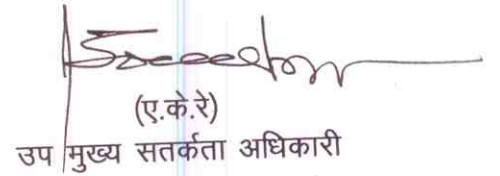 (ए.के.रे)
उप मुख्य सतर्कता अधिकारी